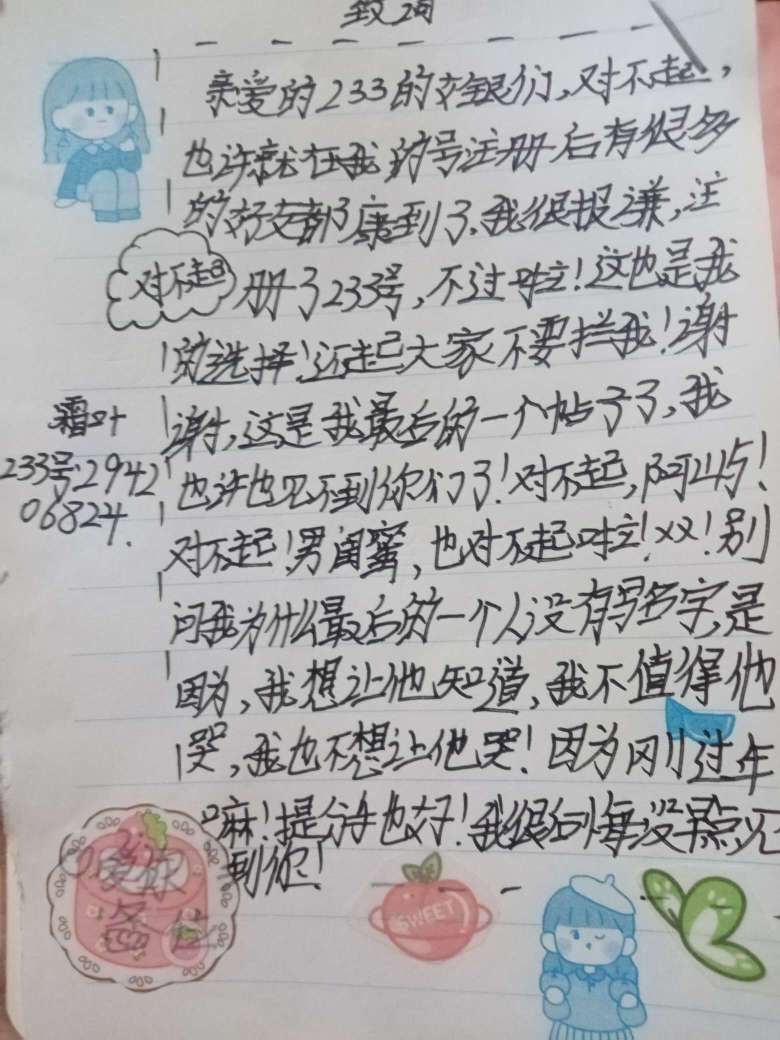 致词
亲爱的233的姣银们,对不起,
也许就在我的号注册后有很多
的好友都了康到了.我很报谦,注
对不起
册了233号,不过啦!这也是我
的选择!还起大家不要拦我!谢
谢,这是我最后的一个帖子了,我
霜叶
233号:2942
06824.
也许也见不到你们了!对不起,阿屿!
对不起!男闺蜜,也对不起啦!XX!别
问我为什么最后的一个人没有写名字,是
因为,我想让他知道,我不值得他
哭,我也不想让他哭!因为刚过年
嘛!提前也好!我很后悔没早点见
到你!
爱你
SWEET